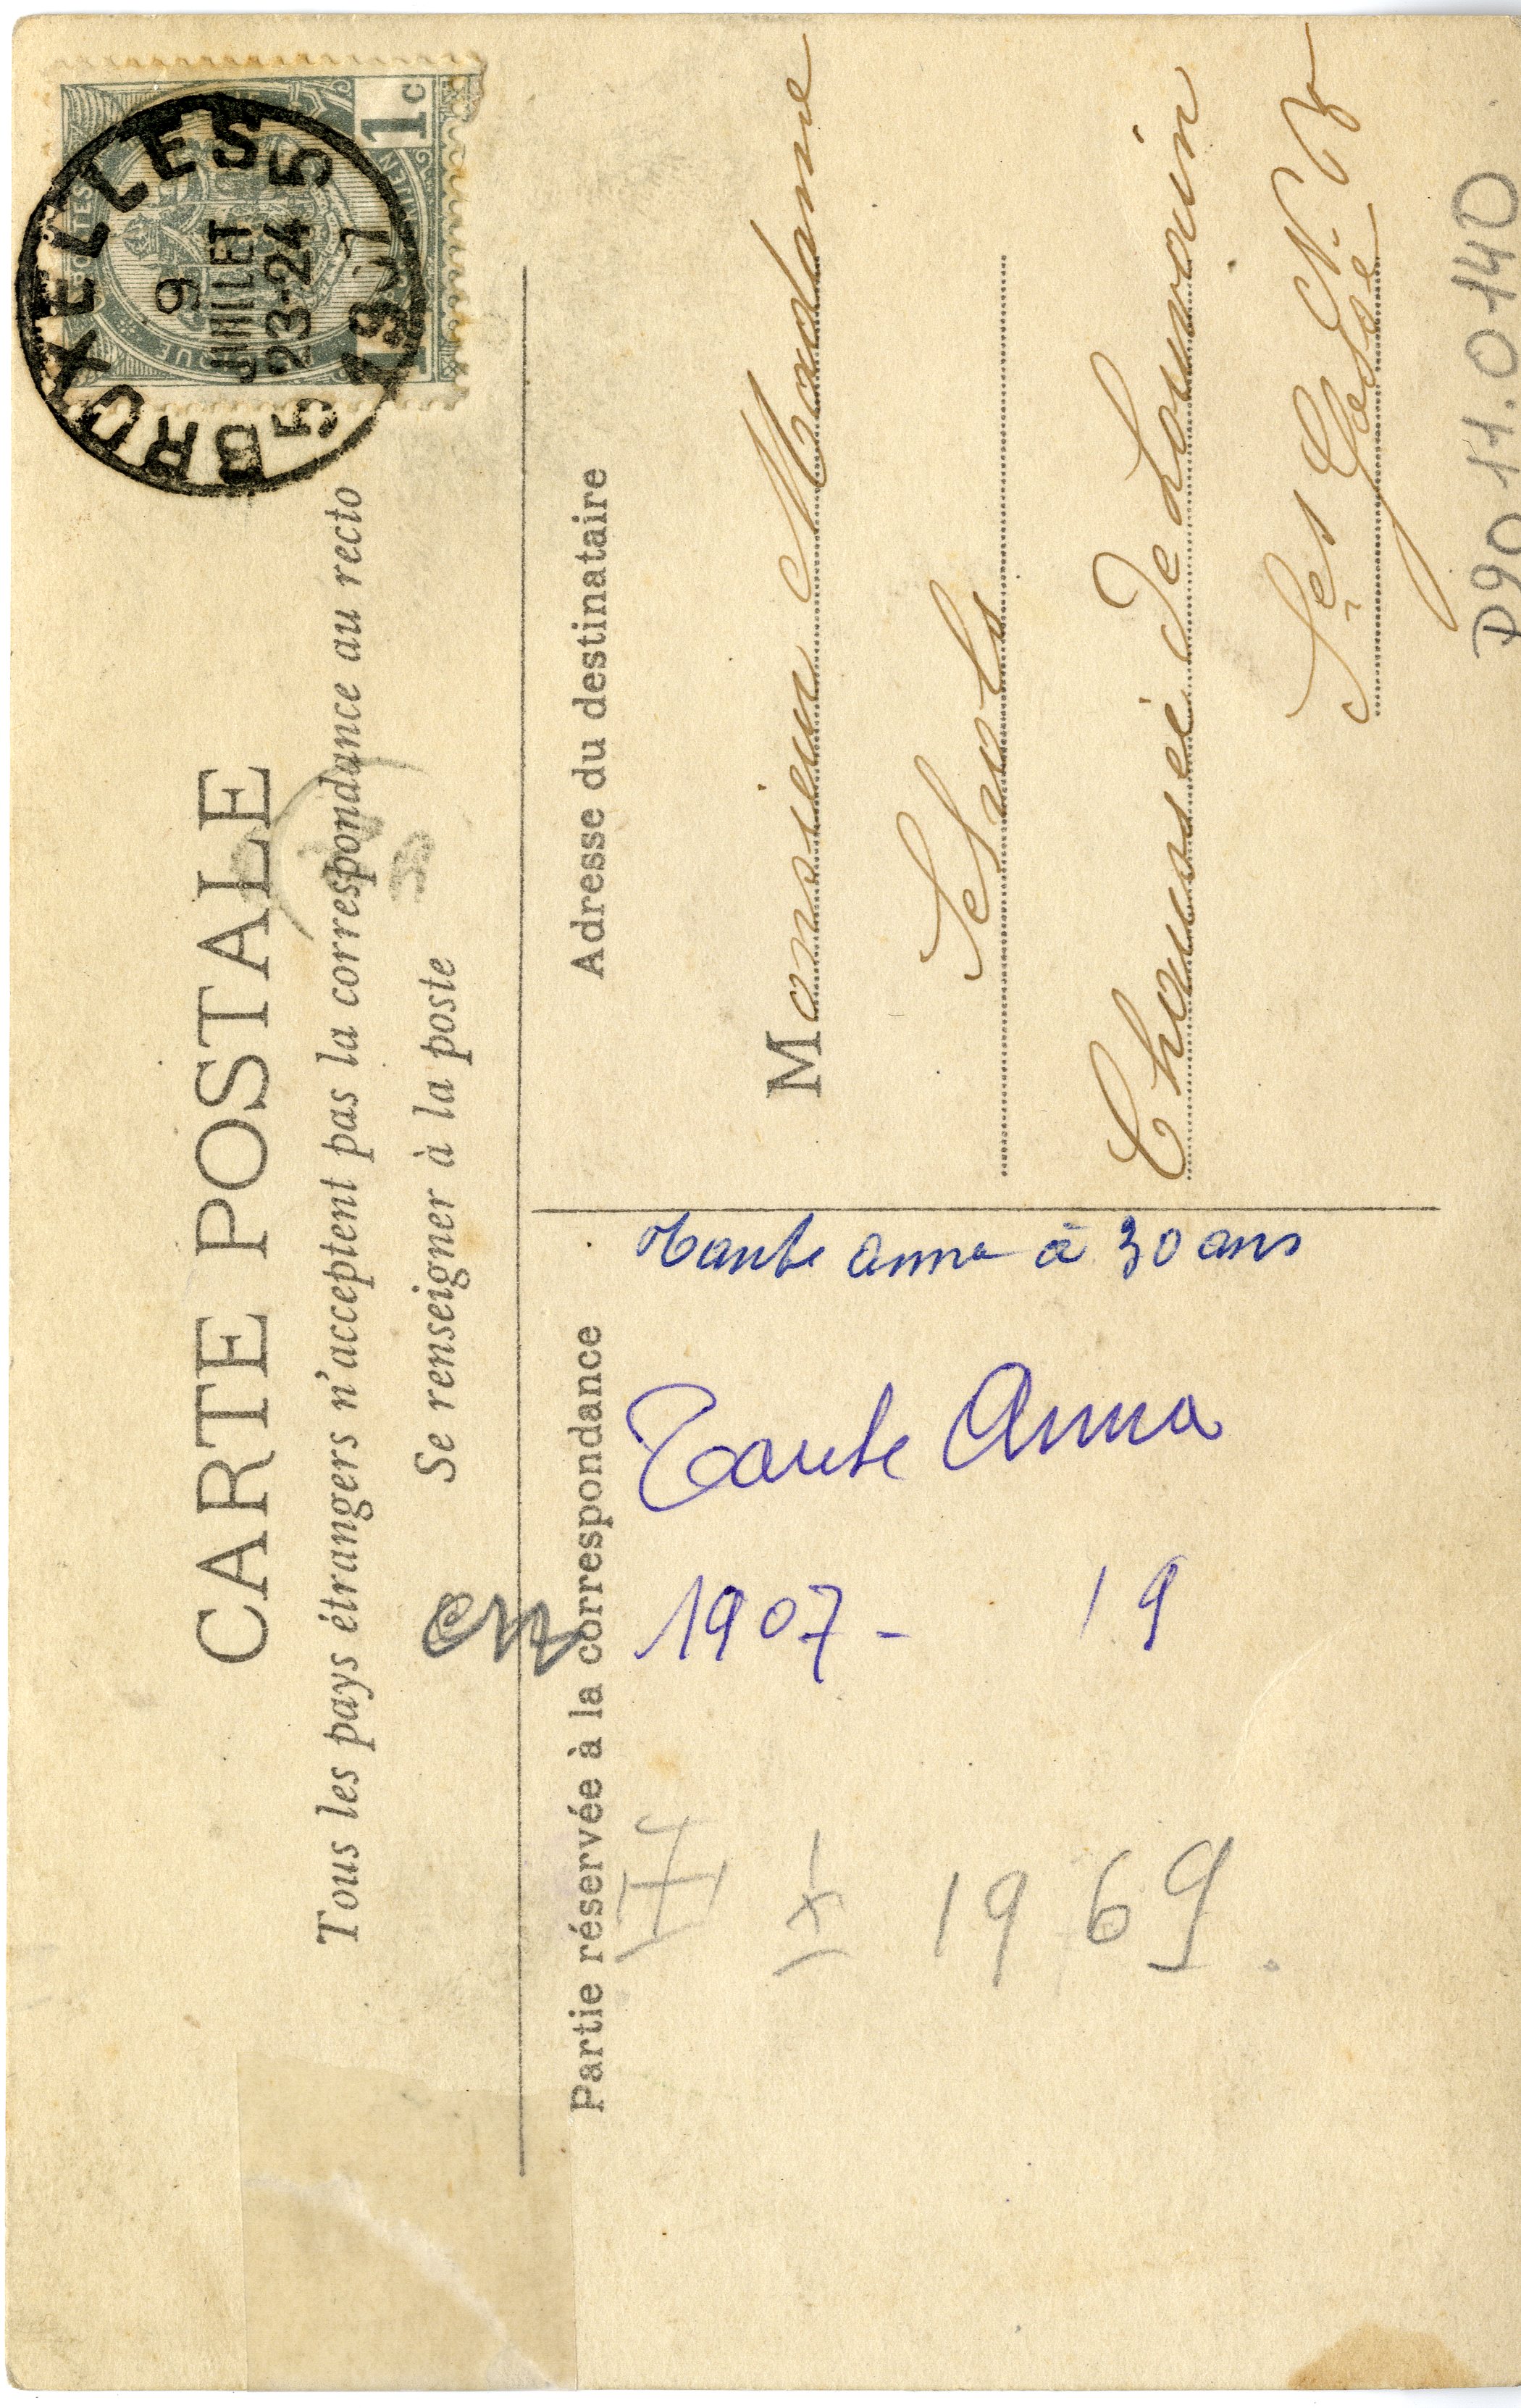 CARTE POSTALE
Tous les pays étrangers n'acceptent pas la correspondance au recto
Se renseigner à la poste
BRUXELLES
9
JUILLET
23-24
5 5
1907
1c
Partie réservée à la correspondance
Adresse du destinataire
Monsieur Madame
Chaussée de Louvain
N.
Tante anna à 30 ans
Tante Anna
en
1907 - 19
1969.
P90.11.0140